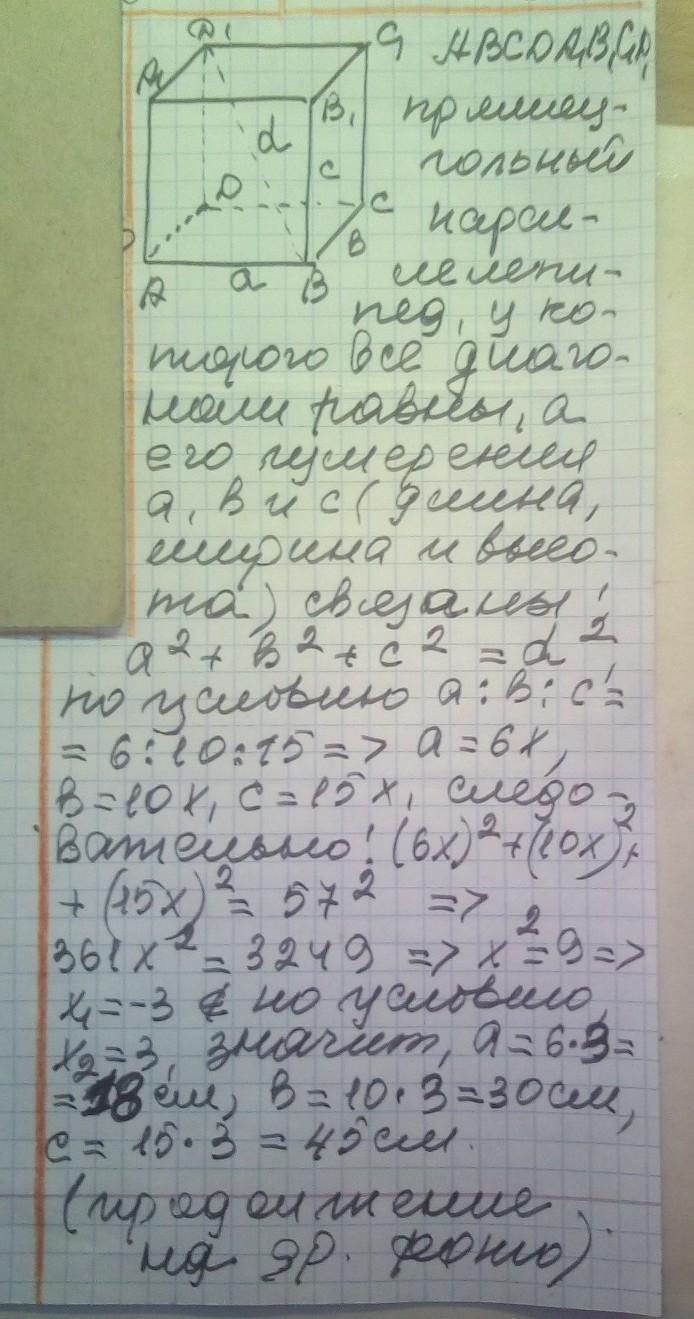 D₁ C₁ ABCDA₁B₁C₁D₁
A₁ B₁ прямоуг-
d c гольный
D C парал-
B лелепи-
A a B
пед, у ко-
торого все диаго-
нали равны, а
его измерения
a, в и c (длина,
ширина и высо-
та) связаны:
a² + в² + c² = d²,
по условию a : в : c =
= 6:10:15 => a = 6x,
в = 10x, c = 15x, следо-
вательно: (6x)² + (10x)² +
+ (15x)² = 57² =>
361x² = 3249 => x² = 9 =>
x₁ = -3 ∉ по условию,
x₂ = 3, значит, a = 6·3 =
= 18 см, в = 10·3 = 30 см,
c = 15·3 = 45 см.
(продолжение
на др. фото).